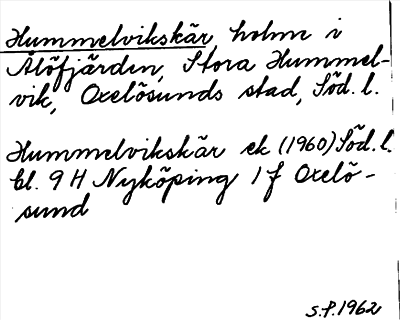 Hummelvikskär holm i
Ålöfjärden, Stora Hummel-
vik, Oxelösunds stad, Söd. l.
Hummelvikskär ek (1960) Söd. l.
bl. 9 H Nyköping 1 f Oxelö-
sund
S.P. 1962